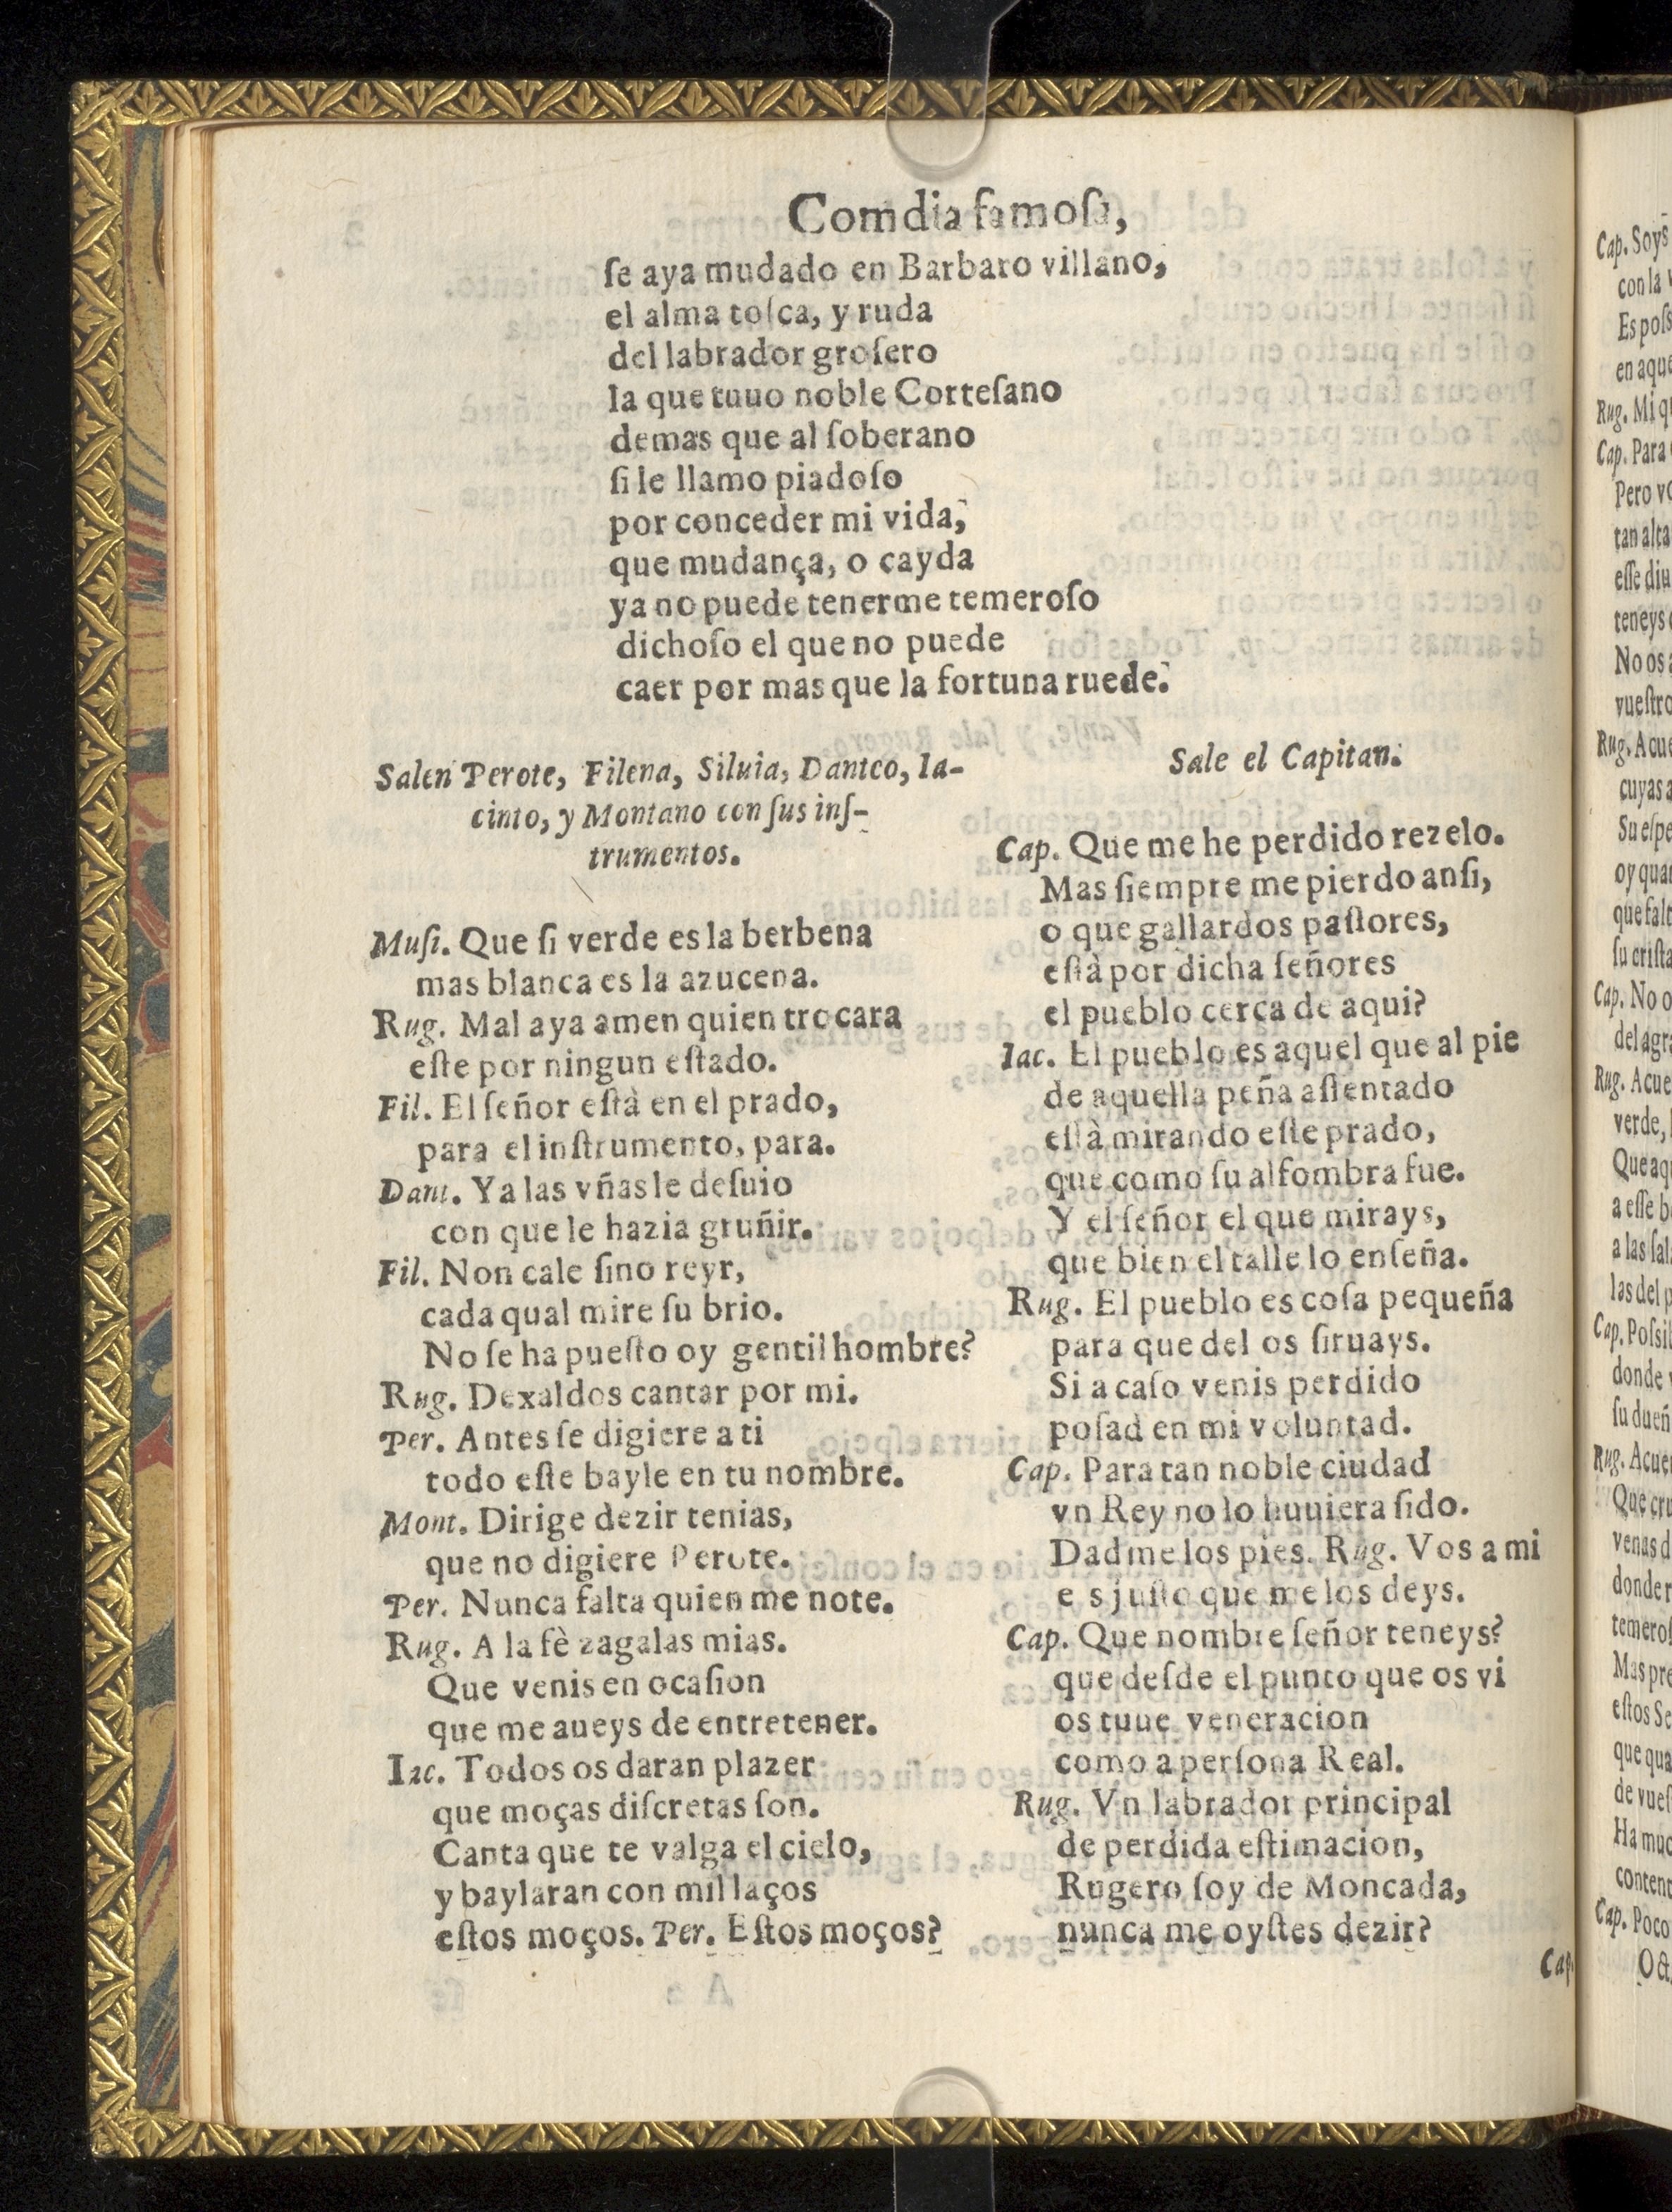 Comdia famoſa,
ſe aya mudado en Barbaro villano,
el alma toſca, y ruda
del labrador groſero
la que tuuo noble Corteſano
demas que al ſoberano
ſi le llamo piadoſo
por conceder mi vida,
que mudança, o cayda
ya no puede tenerme temeroſo
dichoſo el que no puede
caer por mas que la fortuna ruede.
Salen Perote, Filena, Siluia, Danteo, Ia-
cinto, y Montano con ſus inſ-
trumentos.
Muſi. Que ſi verde es la berbena
mas blanca es la azucena.
Rug. Mal aya amen quien trocara
eſte por ningun eſtado.
Fil. El ſeñor eſtà en el prado,
para el inſtrumento, para.
Dant. Ya las vñas le deſuio
con que le hazia gruñir.
Fil. Non cale ſino reyr,
cada qual mire ſu brio.
No ſe ha pueſto oy gentilhombre?
Rug. Dexaldos cantar por mi.
Per. Antes ſe digiere a ti
todo eſte bayle en tu nombre.
Mont. Dirige dezir tenias,
que no digiere Perote.
Per. Nunca falta quien me note.
Rug. A la fè zagalas mias.
Que venis en ocaſion
que me aueys de entretener.
Iac. Todos os daran plazer
que moças diſcretas ſon.
Canta que te valga el cielo,
y baylaran con mil laços
eſtos moços. Per. Eſtos moços?
Sale el Capitan.
Cap. Que me he perdido rezelo.
Mas ſiempre me pierdo anſi,
o que gallardos paſtores,
eſtà por dicha ſeñores
el pueblo cerca de aqui?
Iac. El pueblo es aquel que al pie
de aquella peña aſſentado
eſtà mirando eſte prado,
que como ſu alfombra fue.
Y el ſeñor el que mirays,
que bien el talle lo enſeña.
Rug. El pueblo es coſa pequeña
para que del os ſiruays.
Si a caſo venis perdido
poſad en mi voluntad.
Cap. Para tan noble ciudad
vn Rey no lo huuiera ſido.
Dadme los pies. Rug. Vos a mi
e s juſto que me los deys.
Cap. Que nombre ſeñor teneys?
que deſde el punto que os vi
os tuue veneracion
como a perſona Real.
Rug. Vn labrador principal
de perdida eſtimacion,
Rugero ſoy de Moncada,
nunca me oyſtes dezir?
Cap.
Cap. Soys
con la
Es poſs
en aque
Rug. Mi qu
Cap. Para
Pero vo
tan alta
eſſe diu
teneys
No os a
vueſtro
Rug. Acue
cuyas a
Su eſpe
oy quan
que falt
ſu criſta
Cap. No o
del agra
Rug. Acue
verde,
Que aqu
a eſſe b
a las ſal
las del p
Cap. Poſsi
donde v
ſu dueñ
Rug. Acue
Que cru
venas d
donde r
temeroſ
Mas pre
eſtos Se
que qua
de vueſ
Ha muc
content
Cap. Poco